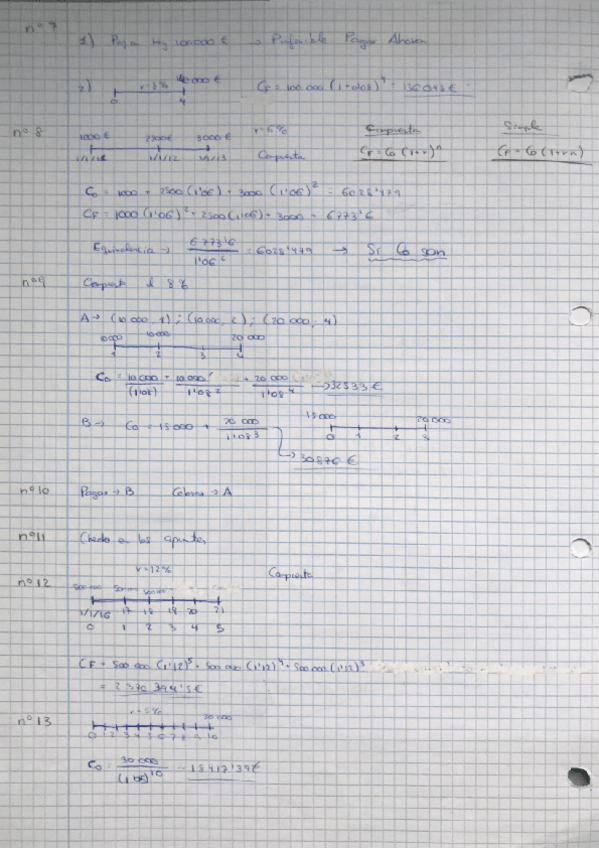 nº 7
1) Pagar hoy 100 000 € → Preferible Pagar Ahora
2) r=8% 0 4 CF = 100 000 (1+0'08)⁴ = 136048 €
nº 8 1000 € 2500€ 3000 € r=6% Compuesta Simple
1/1/12 1/1/13 Compuesta CF = Co (1+r)ⁿ CF = Co (1+rn)
Co = 1000 + 2500 (1'06) + 3000 (1'06)² = 6028'479
CF = 1000 (1'06)² + 2500 (1'06) + 3000 = 6773'6
Equivalencia → 6773'6 / 1'06² = 6028'479 → Sí Co son
nº 9 8 %
A → (10 000, 1) ; (10 000, 2) ; (20 000, 4)
10000 10000 20 000
1 2 3 4
Co = 10 000 / (1'08) + 10 000 / 1'08² + 20 000 / 1'08⁴ → 32533 €
B → Co = 15 000 + 20 000 / 1'08³ 15 000 20 000
0 1 2 3
→ 30876 €
nº 10 Pagar → B Cobrar → A
nº 11 apuntes
r=12% Compuesta
nº 12
1/1/16 17 18 19 20 21
0 1 2 3 4 5
CF = 500 000 (1'12)⁵ + 500 000 (1'12)⁴ + 500 000 (1'12)³
nº 13 r=5%
0 1 2 3 4 5 6 7 8 9 10
Co = 30 000 / (1'05)¹⁰